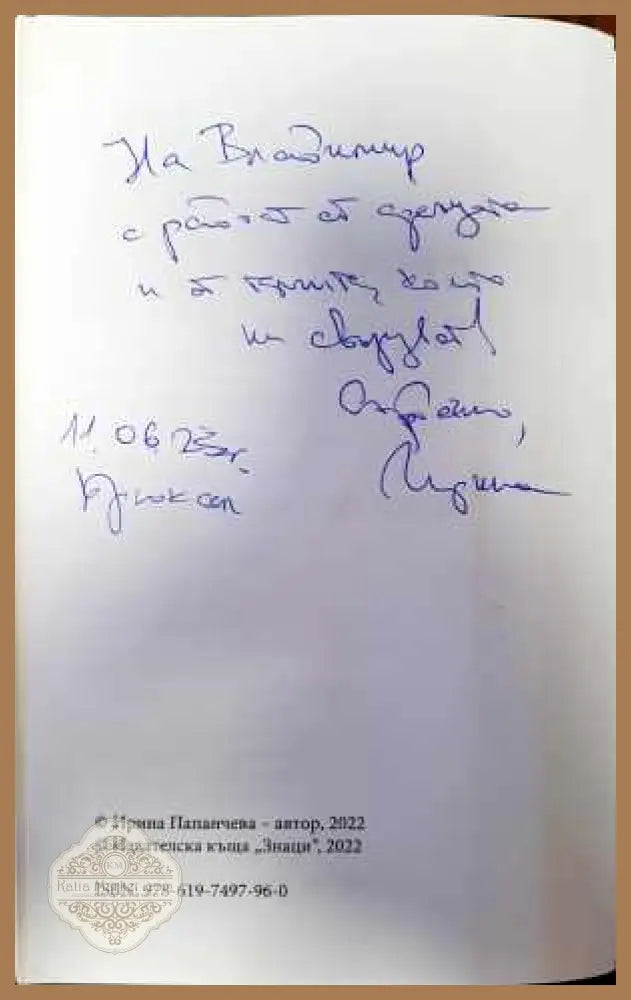 На Владимир
с радост от срещата
и от книгите, които
ни свързват!
Сърдечно,
Ирина
11.06.23г.
Брюксел
© Ирина Папанчева – автор, 2022
© Издателска къща „Знаци”, 2022
ISBN 978-619-7497-96-0
KM